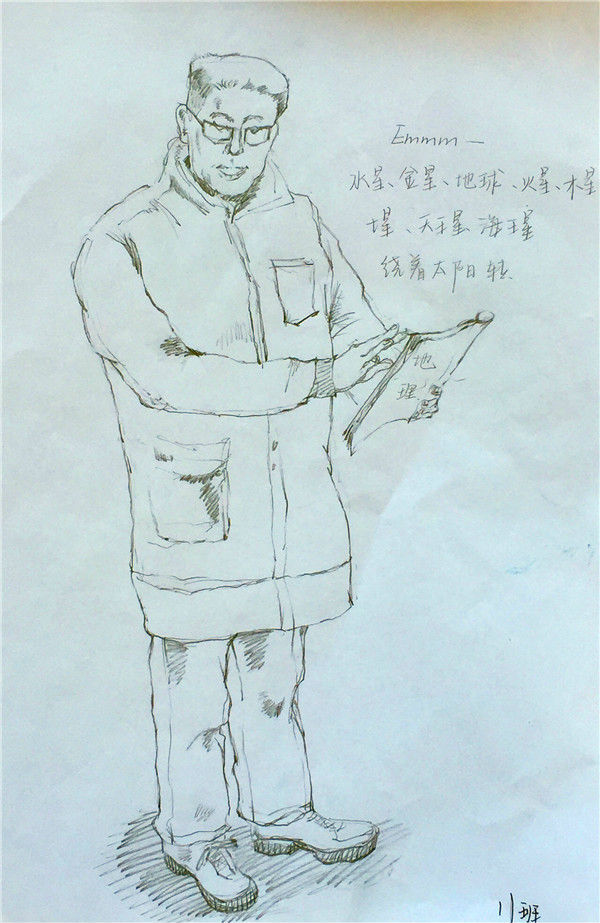 Emmm—
水星、金星、地球、火星、木星
土星、天王星、海王星
绕着太阳转
地
理
11班